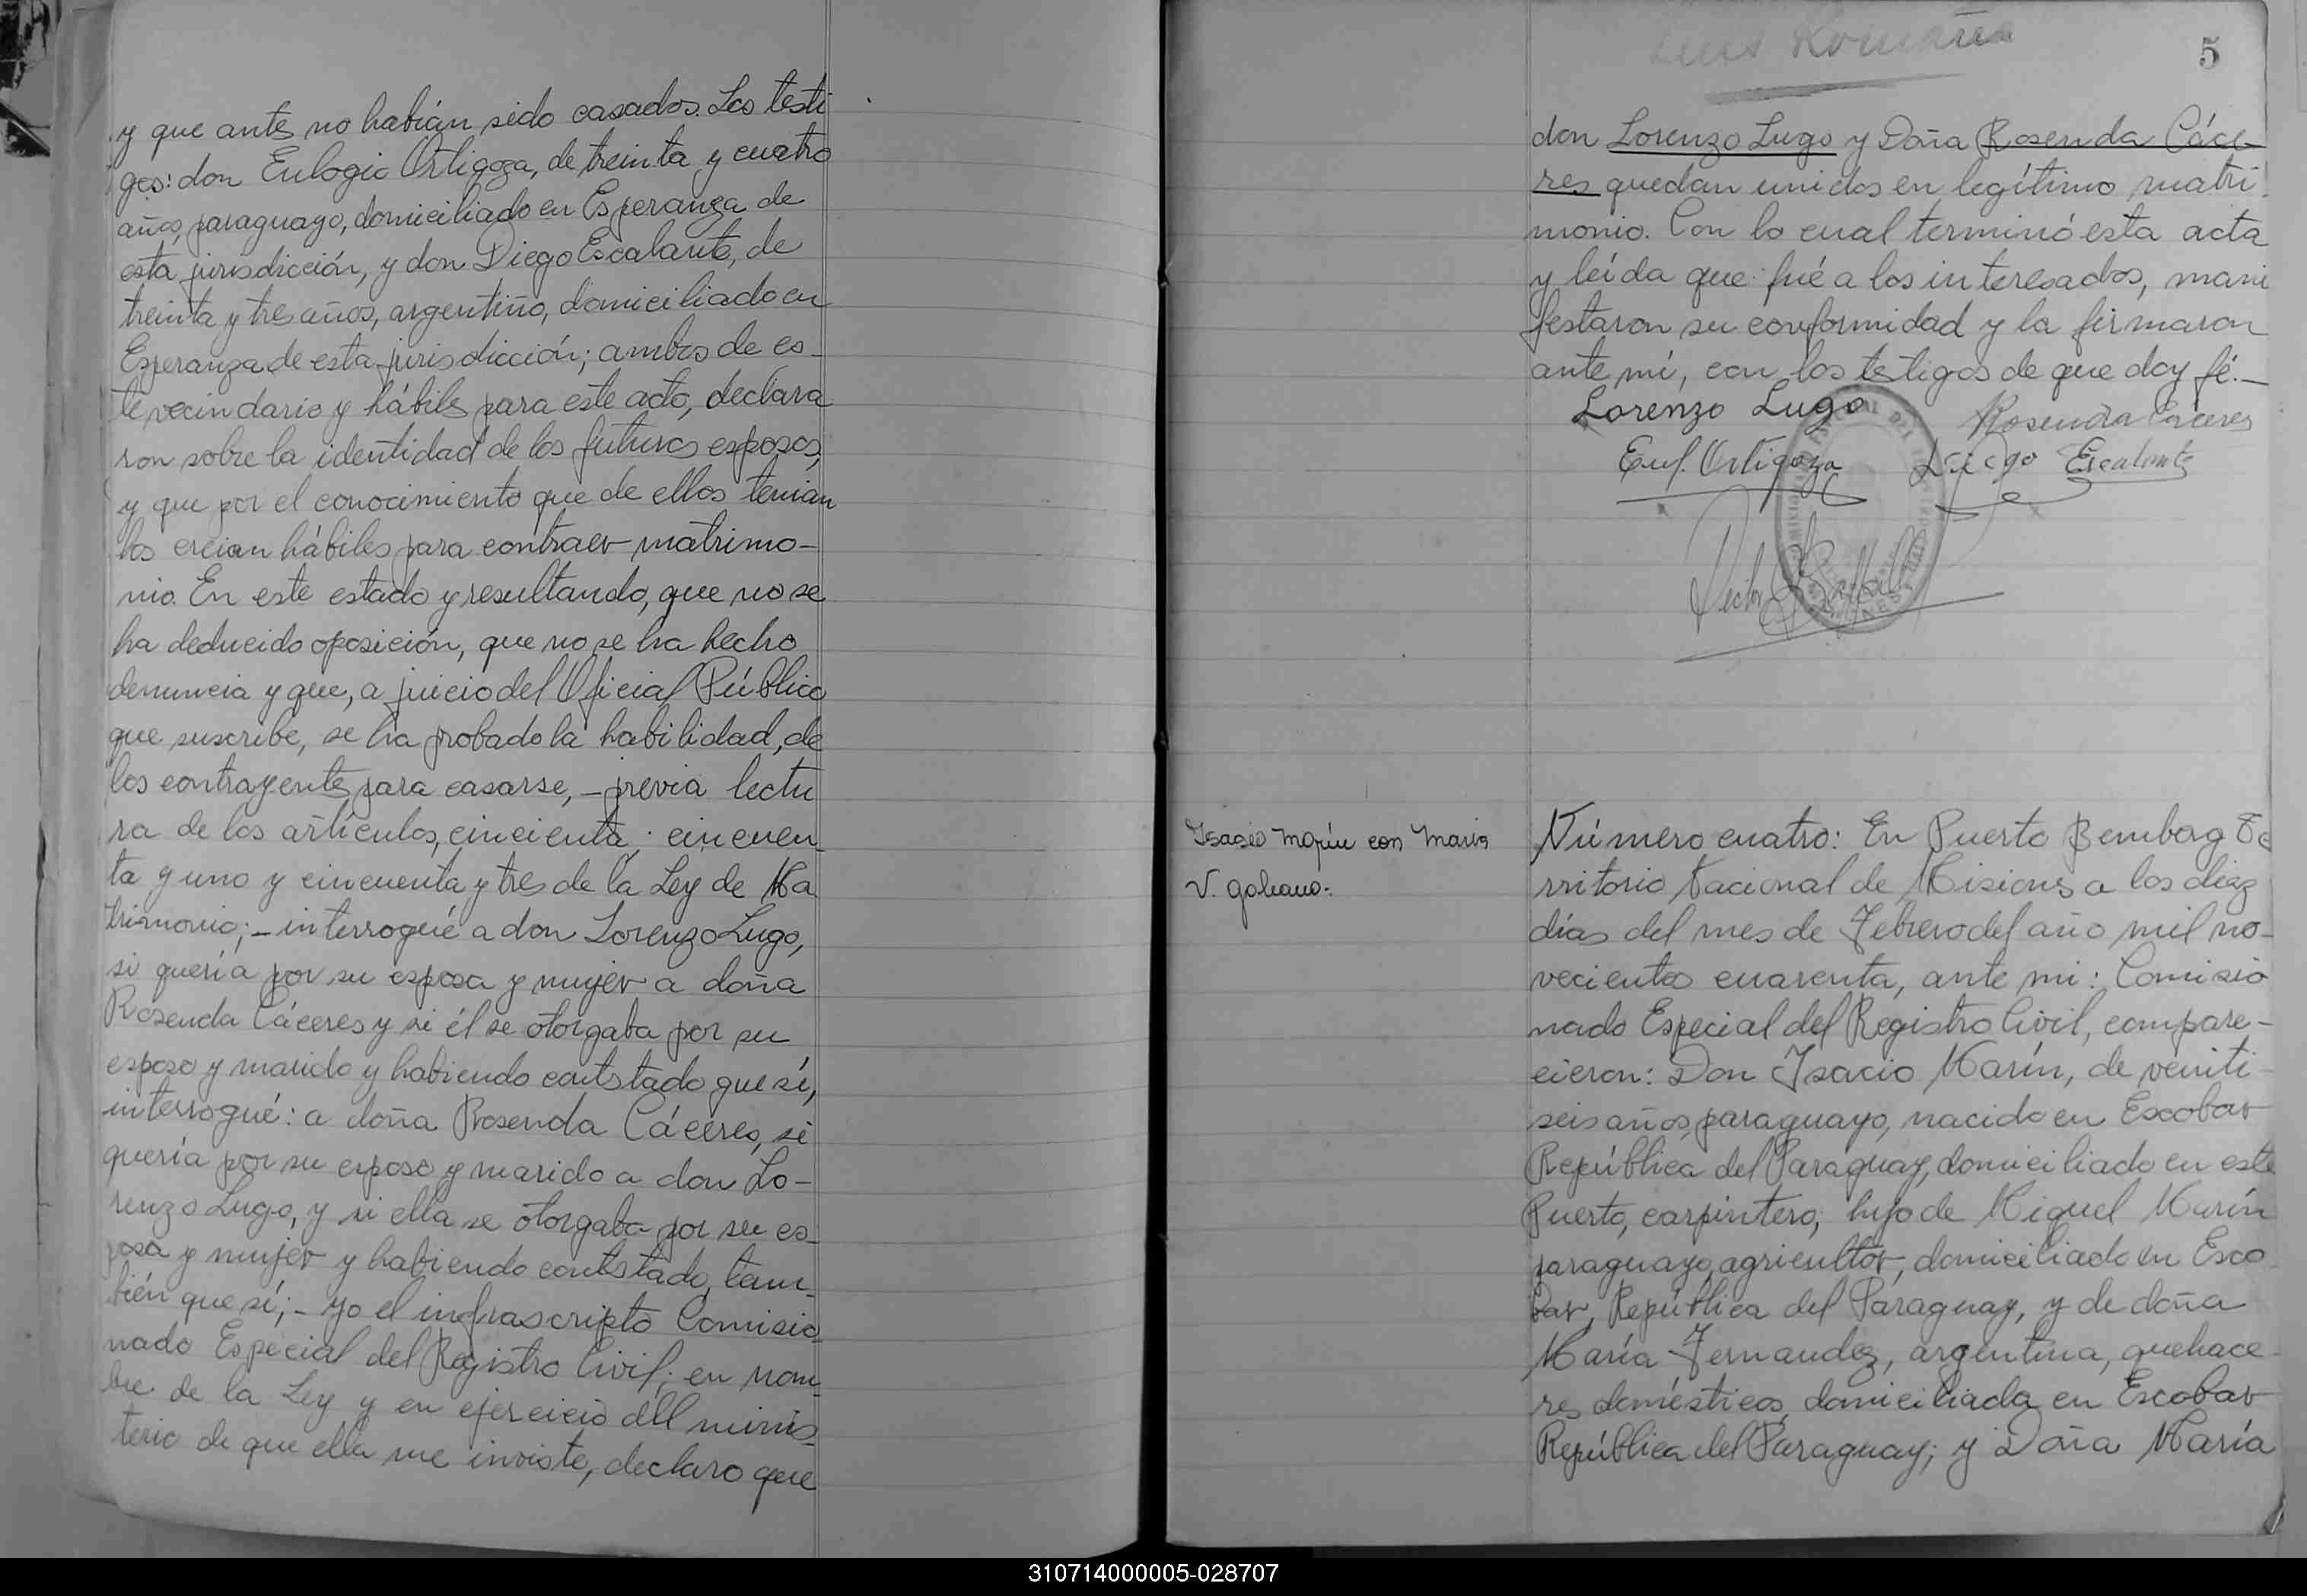 y que antes no habían sido casados. Los testi
gos: don Eulogio Ortigoza, de treinta y cuatro
años, paraguayo, domiciliado en Esperanza de
esta jurisdicción, y don Diego Escalante, de
treinta y tres años, argentino, domiciliado en
Esperanza de esta jurisdicción; ambos de es-
te vecindario y hábiles para este acto, declara
ron sobre la identidad de los futuros esposos,
y que por el conocimiento que de ellos tenian
los creian hábiles para contraer matrimo-
nio. En este estado y resultando, que no se
ha deducido oposición, que no se ha hecho
denuncia y que, a juicio del Oficial Público
que suscribe, se ha probado la habilidad, de
los contrayentes para casarse, - previa lectu
ra de los artículos, cincienta; cincuen-
ta y uno y cincuenta y tres de la Ley de Ma
trimonio; - interrogué a don Lorenzo Lugo,
si quería por su esposa y mujer a doña
Rosenda Cáceres y si él se otorgaba por su
esposo y marido y habiendo contstado que sí,
interrogué: a doña Rosenda Cáceres, si
quería por su esposo y marido a don Lo-
renzo Lugo, y si ella se otorgaba por su es-
posa y mujer y habiendo contstado, tam-
bién que sí; - yo el infrascripto Comisio-
nado Especial del Registro Civil; en nom-
bre de la Ley y en ejercicio del minis-
terio de que ella me inviste, declaro que
Luis Romaña
5
don Lorenzo Lugo y Doña Rosenda Cáce-
res quedan unidos en legítimo matri
monio. Con lo cual terminó esta acta
y leída que fué a los interesados, mani
festaron su conformidad y la firmaron
ante mí, con los testigos de que doy fé.-
Lorenzo Lugo Rosenda Cáceres
Eul. Ortigoza Diego Escalante
Isasio Marín con María
V. Galeano:
Número cuatro: En Puerto Bemberg Te
rritorio Nacional de Misiones a los diez
días del mes de Febrero del año mil no-
vecientos cuarenta, ante mi: Comisio
nado Especial del Registro Civil, compare-
cieron: Don Isacio Marín, de veinti-
seis años, paraguayo, nacido en Escobar
República del Paraguay, domiciliado en este
Puerto, carpintero, hijo de Miguel Marín
paraguayo, agricultor, domiciliado en Esco
bar, República del Paraguay, y de doña
María Fernandez, argentina, quehace-
res domésticos, domiciliada en Escobar
República del Paraguay; y Doña María
310714000005-028707